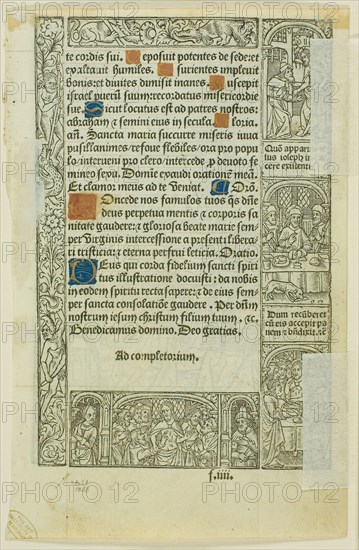 te cordis sui. Deposuit potentes de sede: et
exaltauit humiles. Esurientes impleuit
bonis: et diuites dimisit inanes. Suscepit
israel puerū suum: recordatus misericordie
sue. Sicut locutus est ad patres nostros:
abraham ⁊ semini eius in secula. Gloria.
añ. Sancta maria succurre miseris iuua
pusillanimes / refoue flebiles / ora pro popu
lo / interueni pro clero / intercede ꝓ deuoto fe
mineo sexu. Domīe exaudi orationē meā.
Et clamor meus ad te veniat. Orō.
Concede nos famulos tuos qs dñe
deus perpetua mentis ⁊ corporis sa
nitate gaudere: ⁊ gloriosa beate marie sem
per virginis intercessione a presenti libera
ri tristicia: ⁊ eterna perfrui leticia. Oratio.
Deus qui corda fidelium sancti spiri
tus illustratione docuisti: da nobis
in eodem spiritu recta sapere: ⁊ de eius sem
per sancta consolatiōe gaudere. Per dñm
nostrum iesum christum filium tuum. ⁊c.
Benedicamus domino. Deo gratias.
Ad completorium.
f.iiii.
Cuȝ appari
tus ioseph il
cere existenti
Dum recūberet
cū eis accepit pa
nem ⁊ bñdixit. ⁊c